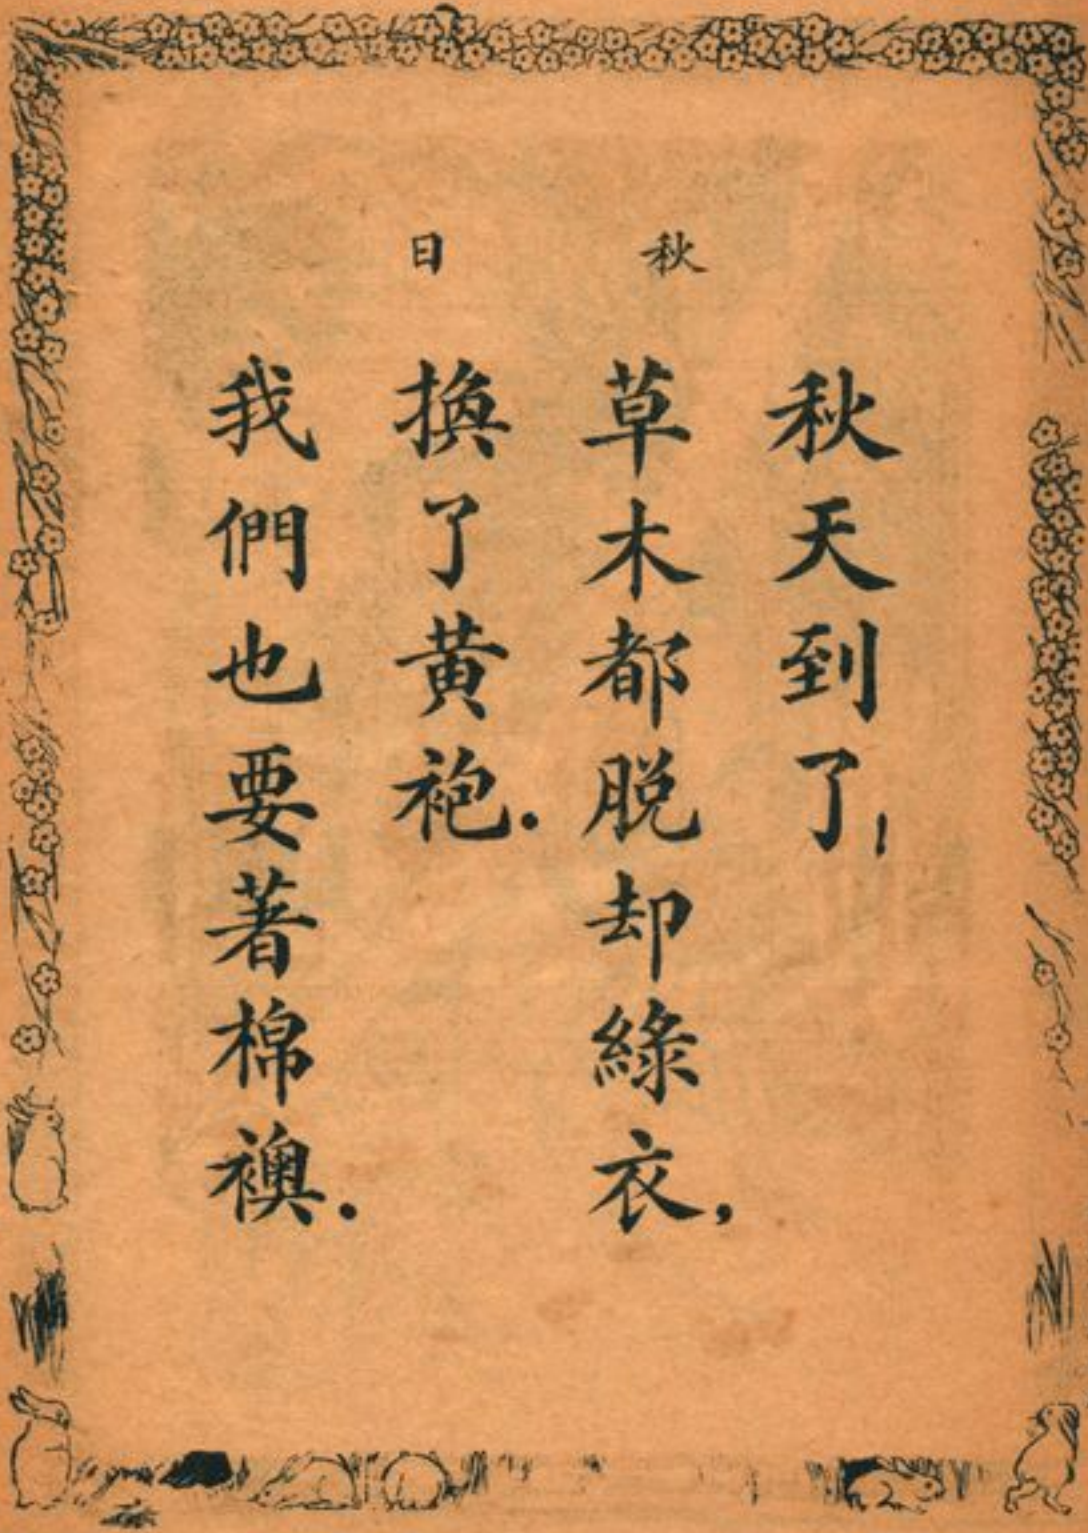 秋日
秋天到了,
草木都脱却綠衣,
換了黃袍.
我們也要著棉襖.